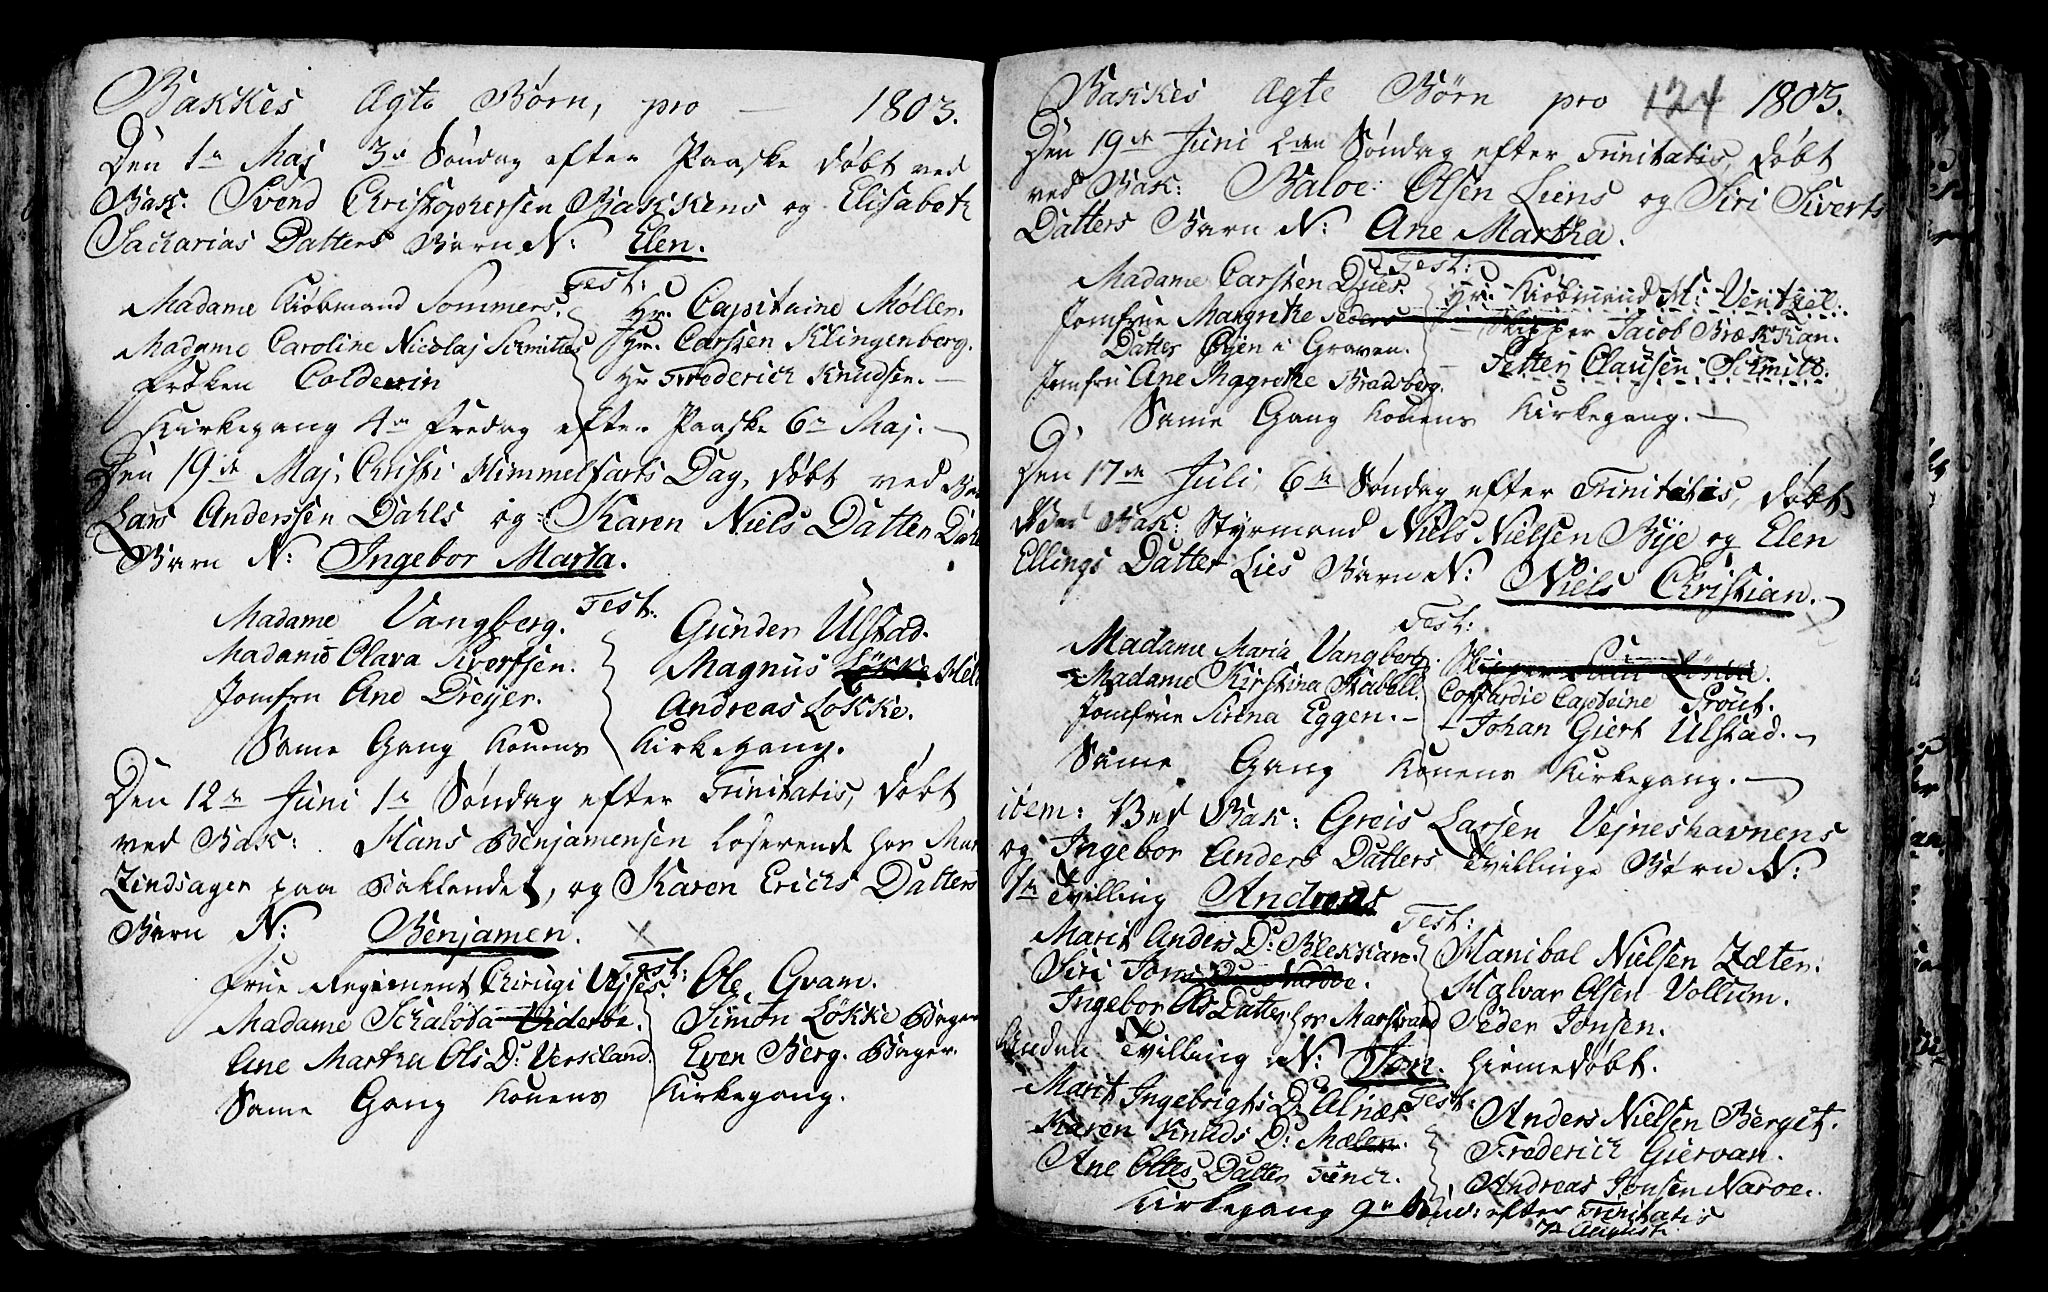 Bakkes Ægte Børn, pro — 1803.
Den 1te Maj 3de Søndag efter Paaske døbt ved
Bak: Svend Christophersen Bakkens og Elisabeth
Sacharias Datters Barn N: Elen.
Test:
Madame Kiøbmand Sommers.
Madame Caroline Nicolaj Schmittes
Frøken Colderin
Hr. Capitaine Møller.
Hr. Carsten Klingenberg.
Hr Frederich Knudsen. —
Kirkegang 4de Fredag efter Paaske 6te Maj. —
Den 19de Maj, Christi Himmelfarts Dag, døbt ved
Lars Anderssen Dahls og Karen Niels Datter
Barn N: Ingebor Marta.
Test:
Madame Vangberg.
Madame Clara Sivertsen.
Jomfru Ane Dreyer.
Gunder Ulstad.
Magnus Løkke
Andreas Løkke.
Same Gang Konens Kirkegang.
Den 12te Juni 1te Søndag efter Trinitatis, døbt
ved Bak: Hans Benjamensen Loserende hos
Zindsager paa Baklendet, og Karen Erichs Datters
Barn N: Benjamen.
Test:
Frue Regiment Chirugi Vejses.
Madame Schaløta Viderøe.
Ane Martha Ols D: Verskland.
Ole Gram.
Simon Løkke Bager
Even Berg. Bager.
Same Gang Konens Kirkegang.
Bakkes Ægte Børn pro 124 1803.
Den 19de Juni 2den Søndag efter Trinitatis, døbt
ved Bak: Baloe Olsen Liens og Siri Siverts
Datters Barn N: Ane Martha.
Test:
Madame Carsten Dues.
Jomfrue Margrethe Peders
Datter Øyen i Graven.
Jomfru Ane Magrethe Bradsberg.
Hr. Kiøbmand M: Ventzel.
Skipper Jacob Brækkan.
Petter Clausen Schmitt.
Same Gang Konens Kirkegang. —
Den 17de Juli, 6te Søndag efter Trinitatis, døbt
Ved Bak: Styrmand Niels Nielsen Bye og Elen
Ellings Datter Lies Barn N: Niels Christian. —
Test:
Madame Maria Vangberg.
Madame Kirstina Stabell.
Jomfrue Sirena Eggen. —
Skipper
Coffardie Capteine Prout.
Johan Giert Ulstad. —
Same Gang Konens Kirkegang. —
idem: Ved Bak: Greis Larsen Vejneshavnens
og Ingebor Anders Datters Tvillinge Børn N:
1te Tvilling Andreas
Test:
Marit Anders D: Blekkan.
Siri Jons
Ingebor Ols Datter hos Marsvand
Hanibal Nielsen Zdter.
Halvar Olsen Vollum.
Peder Jonsen.
Anden Tvilling N: Jon. hiemedøbt.
Test:
Marit Ingebrigts D: Alnæs.
Karen Knuds D: Mælen.
Ane Oles Datter Finch.
Anders Nielsen Berget.
Frederich Giervan.
Andreas Jonsen Naroe.
Kirkegang 9de Sønd: efter Trinitatis
7de Augusti